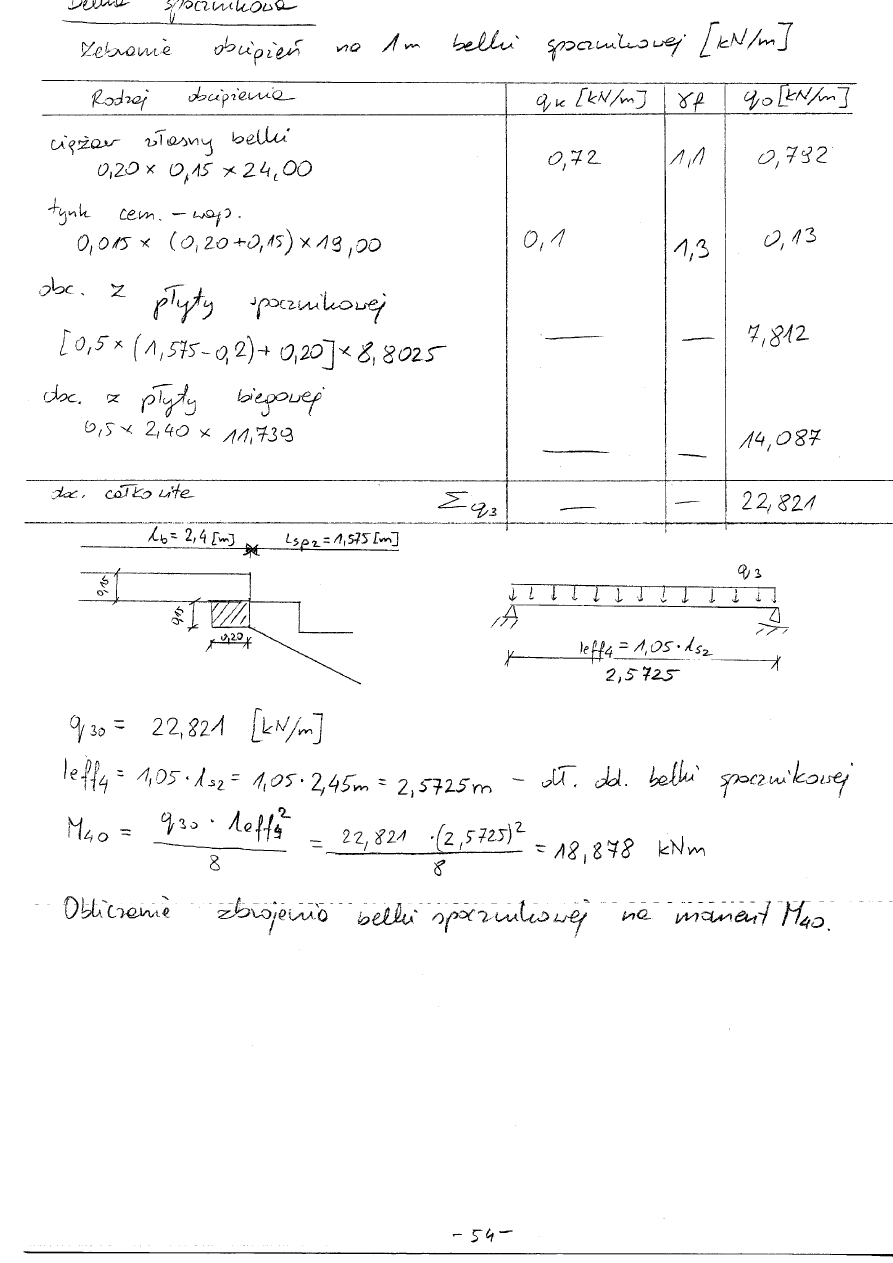 Belka spocznikowa
Zebranie obciążeń na 1m belki spocznikowej [kN/m]
Rodzaj obciążenia qk [kN/m] γf qo [kN/m]
ciężar własny belki
0,20 × 0,15 × 24,00 0,72 1,1 0,792
tynk cem. – wap.
0,015 × (0,20+0,15) × 19,00 0,1 1,3 0,13
obc. z płyty spocznikowej
[0,5 × (1,575 – 0,2) + 0,20] × 8,8025 — — 7,812
obc. z płyty biegowej
0,5 × 2,40 × 11,739 — — 14,087
obc. całkowite Σq3 — — 22,821
lb = 2,4 [m] Lsp2 = 1,575 [m]
q3
0,15
0,15
0,20
leff4 = 1,05 · ls2
2,5725
q30 = 22,821 [kN/m]
leff4 = 1,05 · ls2 = 1,05 · 2,45m = 2,5725m – dł. obl. belki spocznikowej
M40 = q30 · leff4² / 8 = 22,821 · (2,5725)² / 8 = 18,878 kNm
Obliczenie zbrojenia belki spocznikowej na moment M40.
– 54 –